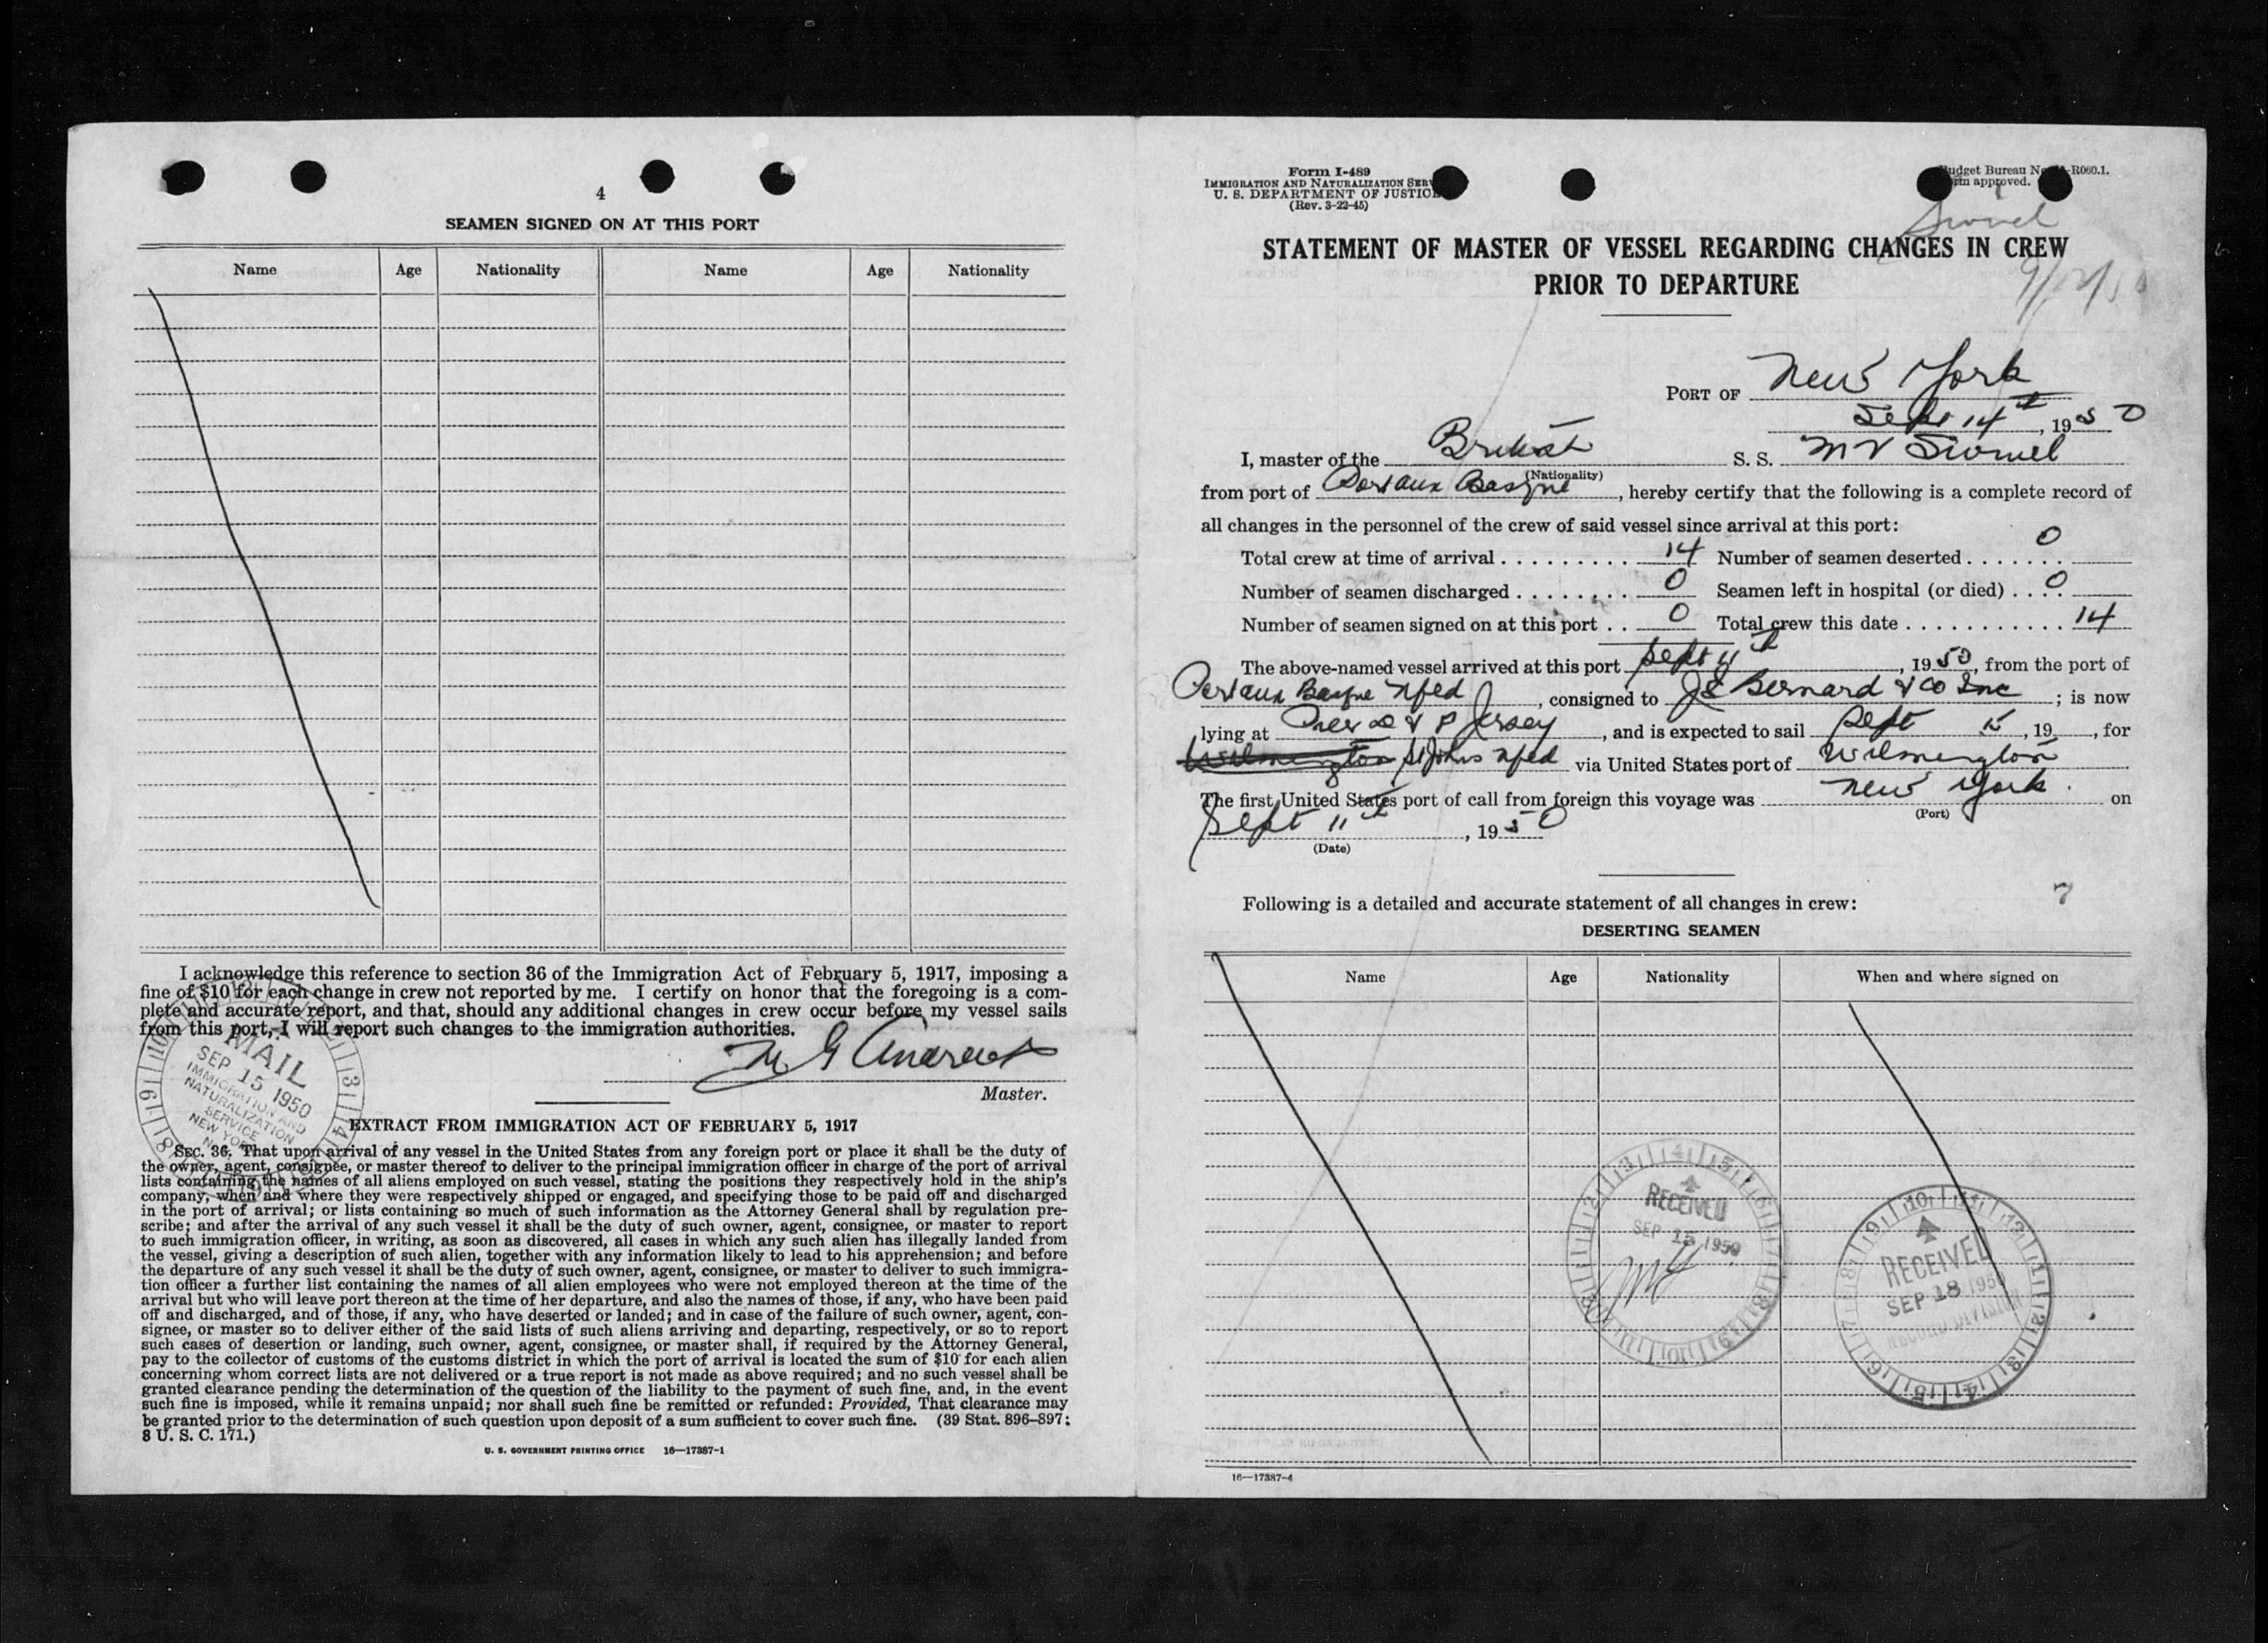 4
SEAMEN SIGNED ON AT THIS PORT
Name Age Nationality Name Age Nationality
I acknowledge this reference to section 36 of the Immigration Act of February 5, 1917, imposing a
fine of $10 for each change in crew not reported by me. I certify on honor that the foregoing is a com-
plete and accurate report, and that, should any additional changes in crew occur before my vessel sails
from this port, I will report such changes to the immigration authorities.
MAIL
SEP 15 1950
IMMIGRATION AND
NATURALIZATION
SERVICE
NEW YORK
M G
Master.
EXTRACT FROM IMMIGRATION ACT OF FEBRUARY 5, 1917
SEC. 36. That upon arrival of any vessel in the United States from any foreign port or place it shall be the duty of
the owner, agent, consignee, or master thereof to deliver to the principal immigration officer in charge of the port of arrival
lists containing the names of all aliens employed on such vessel, stating the positions they respectively hold in the ship's
company, when and where they were respectively shipped or engaged, and specifying those to be paid off and discharged
in the port of arrival; or lists containing so much of such information as the Attorney General shall by regulation pre-
scribe; and after the arrival of any such vessel it shall be the duty of such owner, agent, consignee, or master to report
to such immigration officer, in writing, as soon as discovered, all cases in which any such alien has illegally landed from
the vessel, giving a description of such alien, together with any information likely to lead to his apprehension; and before
the departure of any such vessel it shall be the duty of such owner, agent, consignee, or master to deliver to such immigra-
tion officer a further list containing the names of all alien employees who were not employed thereon at the time of the
arrival but who will leave port thereon at the time of her departure, and also the names of those, if any, who have been paid
off and discharged, and of those, if any, who have deserted or landed; and in case of the failure of such owner, agent, con-
signee, or master so to deliver either of the said lists of such aliens arriving and departing, respectively, or so to report
such cases of desertion or landing, such owner, agent, consignee, or master shall, if required by the Attorney General,
pay to the collector of customs of the customs district in which the port of arrival is located the sum of $10 for each alien
concerning whom correct lists are not delivered or a true report is not made as above required; and no such vessel shall be
granted clearance pending the determination of the question of the liability to the payment of such fine, and, in the event
such fine is imposed, while it remains unpaid; nor shall such fine be remitted or refunded: Provided, That clearance may
be granted prior to the determination of such question upon deposit of a sum sufficient to cover such fine. (39 Stat. 896–897;
8 U. S. C. 171.)
U. S. GOVERNMENT PRINTING OFFICE 16—17387-1
Form I-489
IMMIGRATION AND NATURALIZATION
U. S. DEPARTMENT OF JUSTICE
(Rev. 3-22-45)
Budget Bureau No. -R060.1.
approved.
STATEMENT OF MASTER OF VESSEL REGARDING CHANGES IN CREW
PRIOR TO DEPARTURE
PORT OF New York
Sept 14th, 1950
I, master of the British S. S. MV
(Nationality)
from port of Portaux Basque, hereby certify that the following is a complete record of
all changes in the personnel of the crew of said vessel since arrival at this port:
Total crew at time of arrival 14 Number of seamen deserted 0
Number of seamen discharged 0 Seamen left in hospital (or died) 0
Number of seamen signed on at this port 0 Total crew this date 14
The above-named vessel arrived at this port Sept 11th, 1950, from the port of
Portaux Basque Nfld, consigned to Bernard & Co Inc; is now
lying at Pier D & P Jersey, and is expected to sail Sept 15, 19 , for
Wilmington St Johns Nfld via United States port of Wilmington
The first United States port of call from foreign this voyage was New York on
(Port)
Sept 11th, 1950
(Date)
Following is a detailed and accurate statement of all changes in crew: 7
DESERTING SEAMEN
Name Age Nationality When and where signed on
RECEIVED
SEP 15 1950
RECEIVED
SEP 18 1950
RECORD DIVISION
16—17387-4